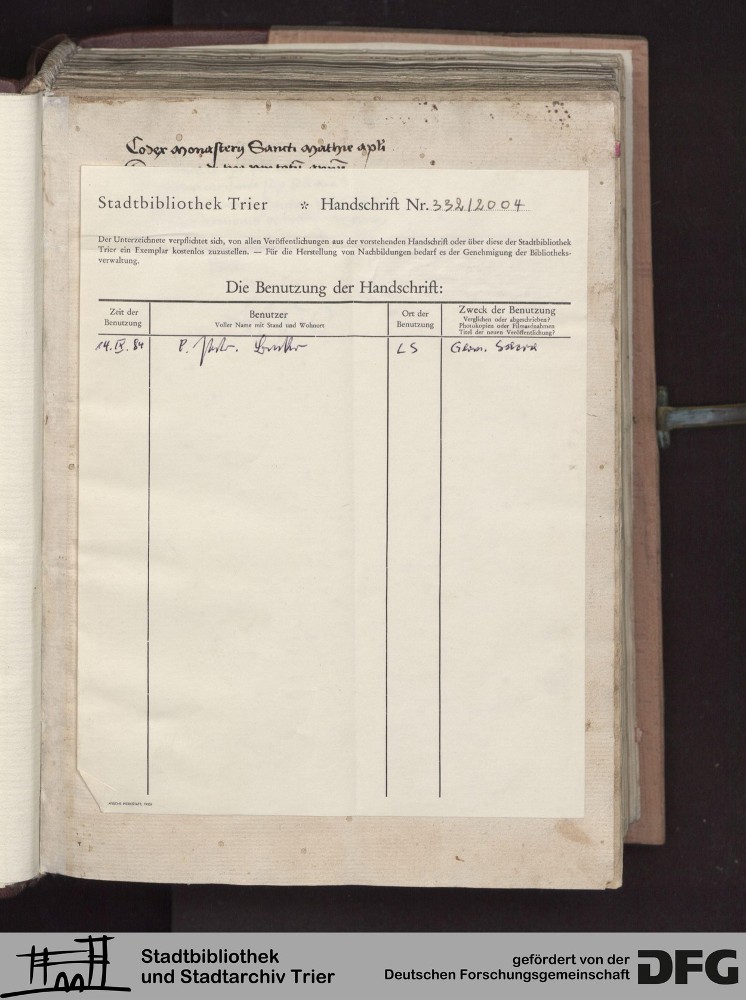 Codex monastery Sancti Mathie apli
Stadtbibliothek Trier * Handschrift Nr. 332/2004
Der Unterzeichnete verpflichtet sich, von allen Veröffentlichungen aus der vorstehenden Handschrift oder über diese der Stadtbibliothek
Trier ein Exemplar kostenlos zuzustellen. — Für die Herstellung von Nachbildungen bedarf es der Genehmigung der Bibliotheks-
verwaltung.
Die Benutzung der Handschrift:
Zeit der
Benutzung
Benutzer
Voller Name mit Stand und Wohnort
Ort der
Benutzung
Zweck der Benutzung
Verglichen oder abgeschrieben?
Photokopien oder Filmaufnahmen
Titel der neuen Veröffentlichung?
14. IX. 84
P.
LS
Germ.
Stadtbibliothek
und Stadtarchiv Trier
gefördert von der
Deutschen Forschungsgemeinschaft
DFG